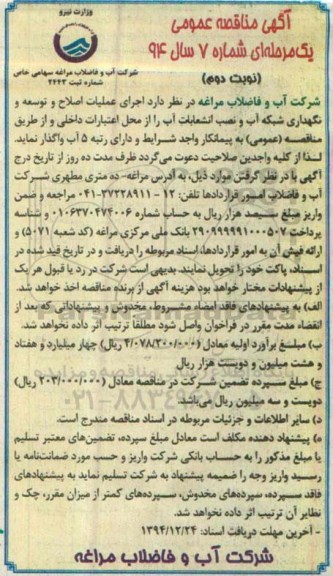 وزارت نیرو
آگهی مناقصه عمومی
یک‌مرحله‌ای شماره ۷ سال ۹۴
(نوبت دوم)
شرکت آب و فاضلاب مراغه سهامی خاص
شماره ثبت ۲۴۴۳
شرکت آب و فاضلاب مراغه در نظر دارد اجرای عملیات اصلاح و توسعه و
نگهداری شبکه آب و نصب انشعابات آب را از محل اعتبارات داخلی و از طریق
مناقصه (عمومی) به پیمانکار واجد شرایط و دارای رتبه ۵ آب واگذار نماید.
لذا از کلیه واجدین صلاحیت دعوت می‌گردد ظرف مدت ده روز از تاریخ درج
آگهی با در نظر گرفتن موارد ذیل، به آدرس مراغه- ده متری مطهری شرکت
آب و فاضلاب امور قراردادها تلفن: ۱۲ - ۳۷۲۲۸۹۱۱-۰۴۱ مراجعه و ضمن
واریز مبلغ سیصد هزار ریال به حساب شماره ۰۱۰۶۳۷۰۴۷۴۰۰۶ و شناسه
پرداخت ۲۹۰۹۹۹۹۹۱۰۰۰۵۰۷ بانک ملی مرکزی مراغه (کد شعبه ۵۰۷۱) و
ارائه فیش آن به امور قراردادها، اسناد مربوطه را دریافت و در تاریخ قید شده در
اسناد، پاکت خود را تحویل نمایند. بدیهی است شرکت در رد یا قبول هر یک
از پیشنهادات مختار خواهد بود هزینه آگهی از برنده مناقصه اخذ خواهد شد.
الف) به پیشنهادهای فاقد امضاء مشروط، مخدوش و پیشنهاداتی که بعد از
انقضاء مدت مقرر در فراخوان واصل شود مطلقا ترتیب اثر داده نخواهد شد.
ب) مبلغ برآورد اولیه معادل (۴/۰۷۸/۲۰۰/۰۰۰ ریال) چهار میلیارد و هفتاد
و هشت میلیون و دویست هزار ریال
ج) مبلغ سپرده تضمین شرکت در مناقصه معادل (۲۰۳/۰۰۰/۰۰۰ ریال)
دویست و سه میلیون ریال می‌باشد.
۰۲۱-۸۸۳۴۹
د) سایر اطلاعات و جزئیات مربوطه در اسناد مناقصه مندرج است.
ه) پیشنهاد دهنده مکلف است معادل مبلغ سپرده، تضمین‌های معتبر تسلیم
یا مبلغ مذکور را به حساب بانکی شرکت واریز و حسب مورد ضمانت‌نامه یا
رسید واریز وجه را ضمیمه پیشنهاد به شرکت تسلیم نماید به پیشنهادهای
فاقد سپرده، سپرده‌های مخدوش، سپرده‌های کمتر از میزان مقرر، چک و
نظایر آن ترتیب اثر داده نخواهد شد.
- آخرین مهلت دریافت اسناد: ۱۳۹۴/۱۲/۲۴
شرکت آب و فاضلاب مراغه